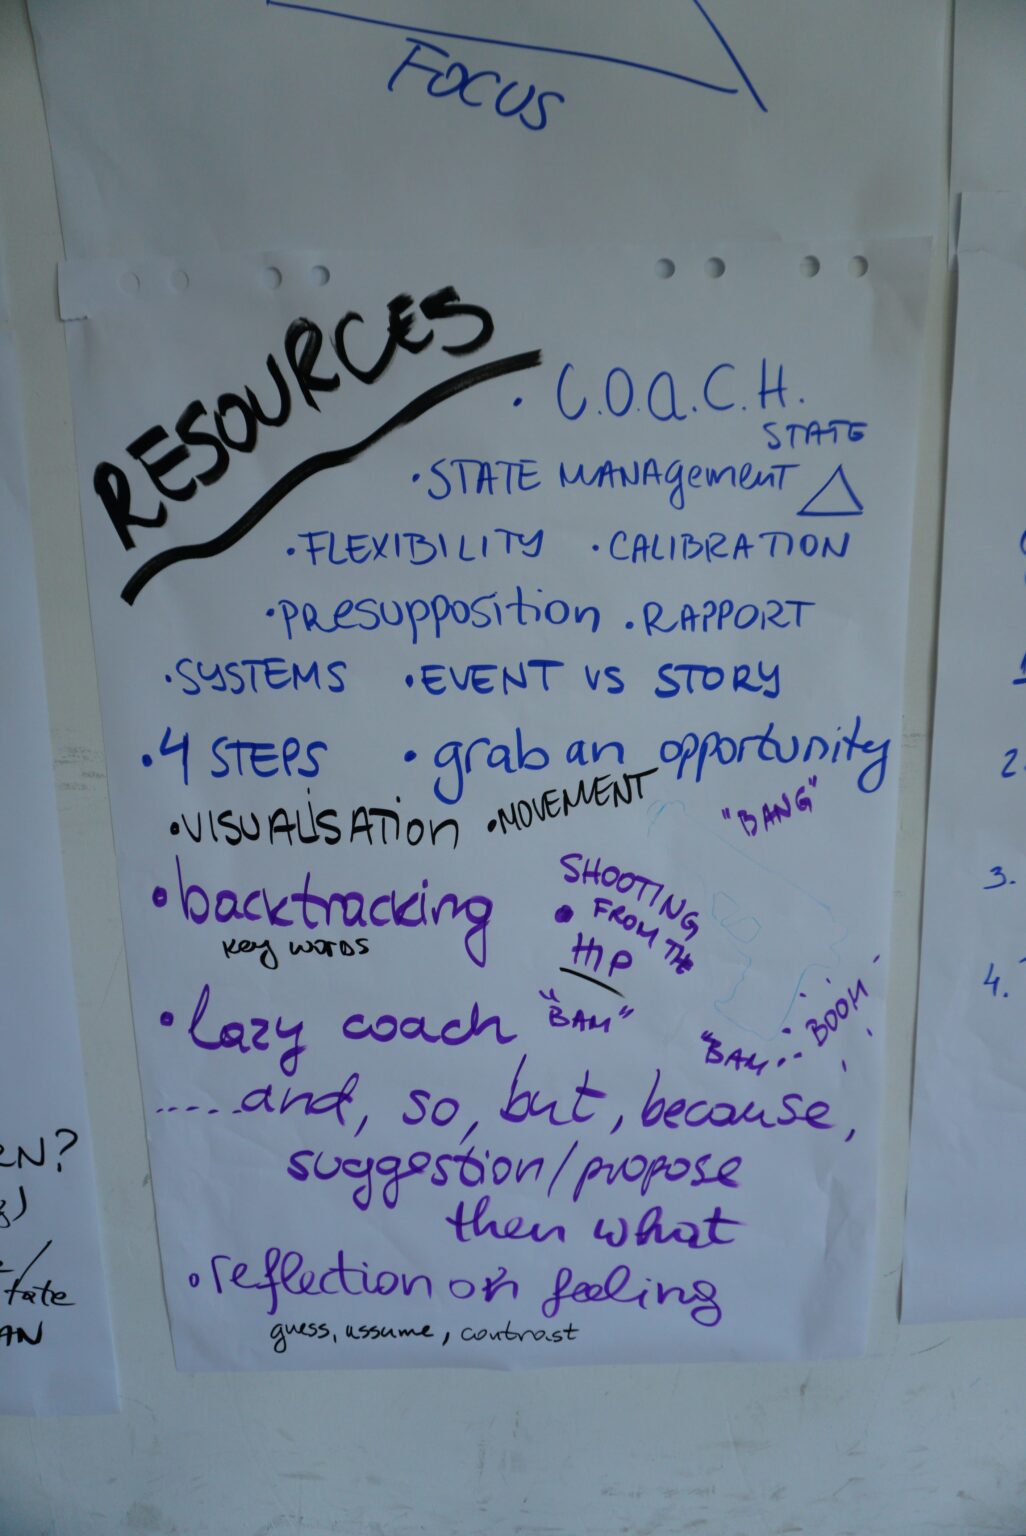 FOCUS
RESOURCES
• C.O.A.C.H.
STATE
• STATE MANAGement
• FLEXIBILITY • CALIBRATION
• PResupposition • RAPPORT
• SYSTEMS • EVENT VS STORY
• 4 STEPS • grab an opportunity
• VISUALiSATion • MOVEMENT
"BANG"
• backtracking
key words
• SHOOTING
FROM TH
HIP
• lazy coach
"BAM"
"BAM... BOOM
.....and, so, but, because,
suggestion/propose
then what
• reflection on feeling
guess, assume, contrast
2.
3.
4.
EN?
tate
AN